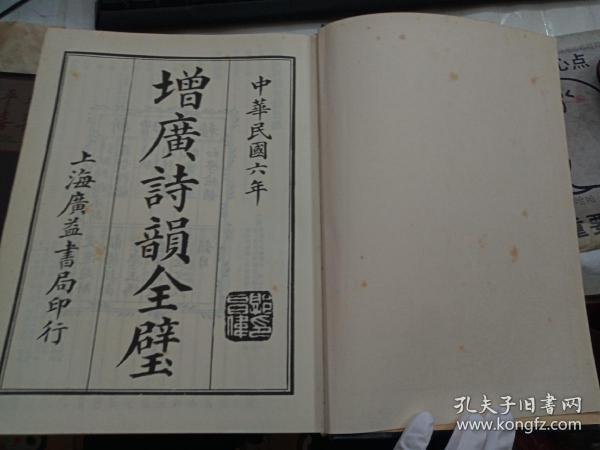 中華民國六年
增廣詩韻全璧
上海廣益書局印行
点
重要
孔夫子旧书网
www.kongfz.com